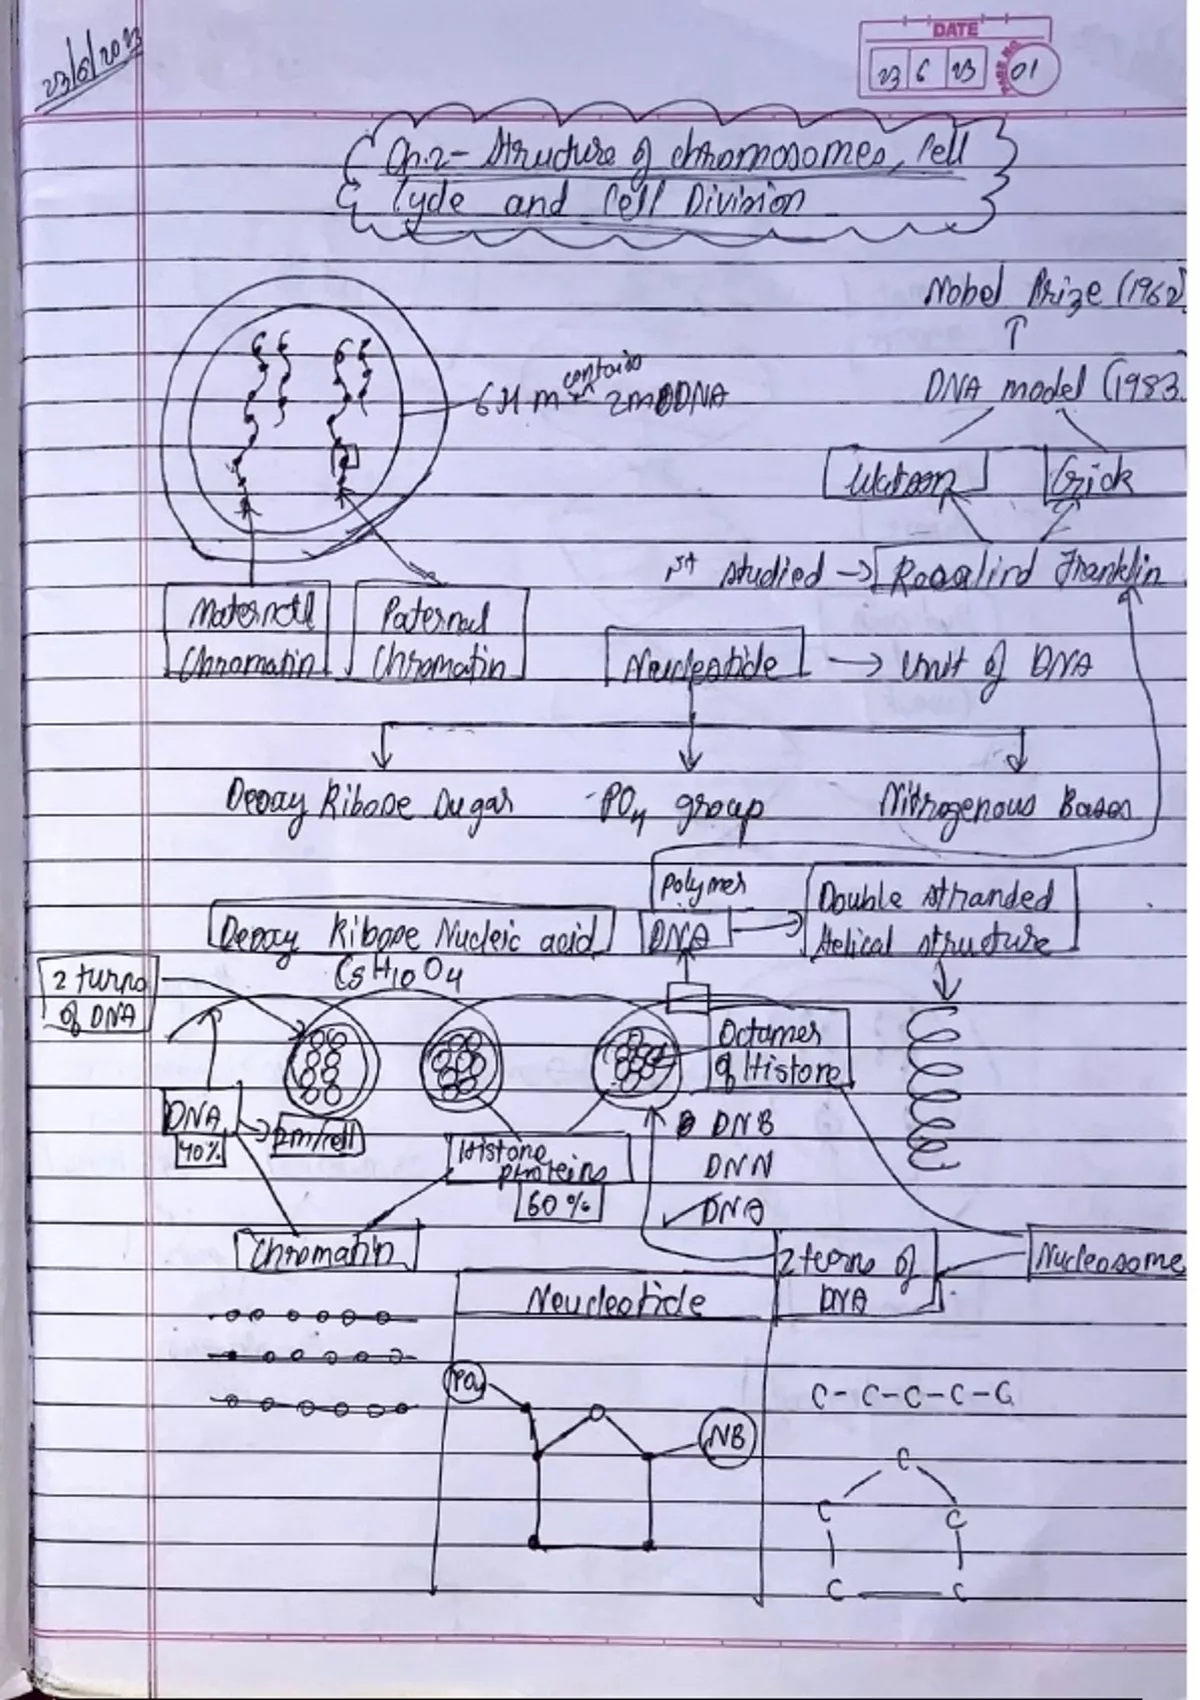 23/6/2023
DATE
23 6 23
PAGE NO. 01
Ch.2- Structure of chromosomes, Cell
Cycle and Cell Division
Nobel Prize (1962)
DNA model (1983
contains
2m DNA
Watson
Crick
1st studied → Rosalind Franklin
Maternal
Chromatin
Paternal
Chromatin
Neucleotide → Unit of DNA
Deoxy Ribose Sugar
PO4 group
Nitrogenous Bases
Polymer
DNA
Double stranded
Helical structure
Deoxy Ribose Nucleic acid
C5H10O4
2 turns
of DNA
Octamer
of Histone
DNA
40%
2m/cell
Histone
proteins
60%
DNB
DNN
DNA
Chromatin
2 turns of
DNA
Nucleosome
Neucleotide
PO4
NB
C-C-C-C-C
C
C C
C C